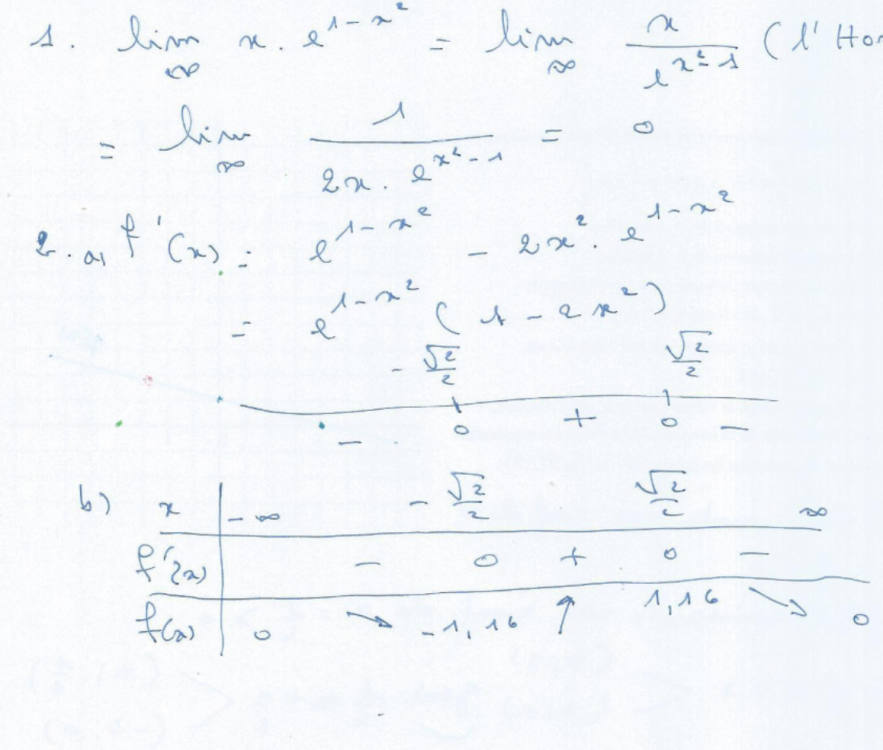 1. lim x · e^{1-x²} = lim x / e^{x²-1} (l'Ho
∞ ∞
= lim 1 / (2x · e^{x²-1}) = 0
∞
2. a) f'(x) = e^{1-x²} - 2x² · e^{1-x²}
= e^{1-x²} (1 - 2x²)
-√2/2 √2/2
- 0 + 0 -
b) x | -∞ -√2/2 √2/2 ∞
f'(x) | - 0 + 0 -
f(x) | 0 ↘ -1,16 ↗ 1,16 ↘ 0